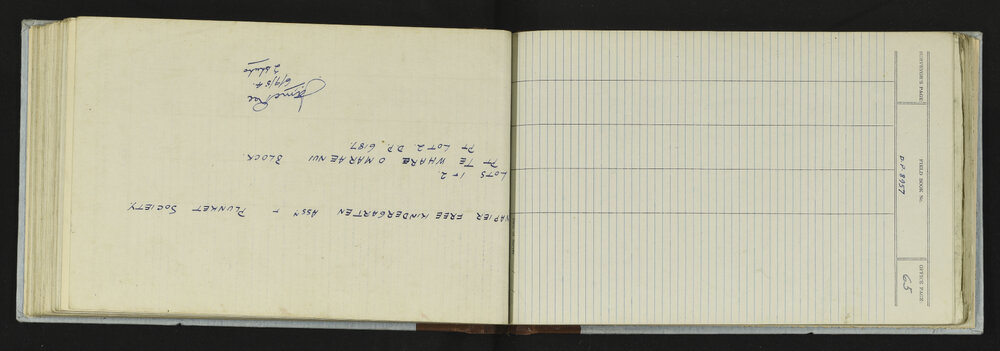 NAPIER FREE KINDERGARTEN ASSN + PLUNKET SOCIETY
LOTS 1 + 2.
PT TE WHARE O MARAENUI BLOCK.
PT LOT 2 D.P. 6187.
6/9/54.
SURVEYOR'S PAGE
FIELD BOOK No.
D.P. 8957
OFFICE PAGE
65